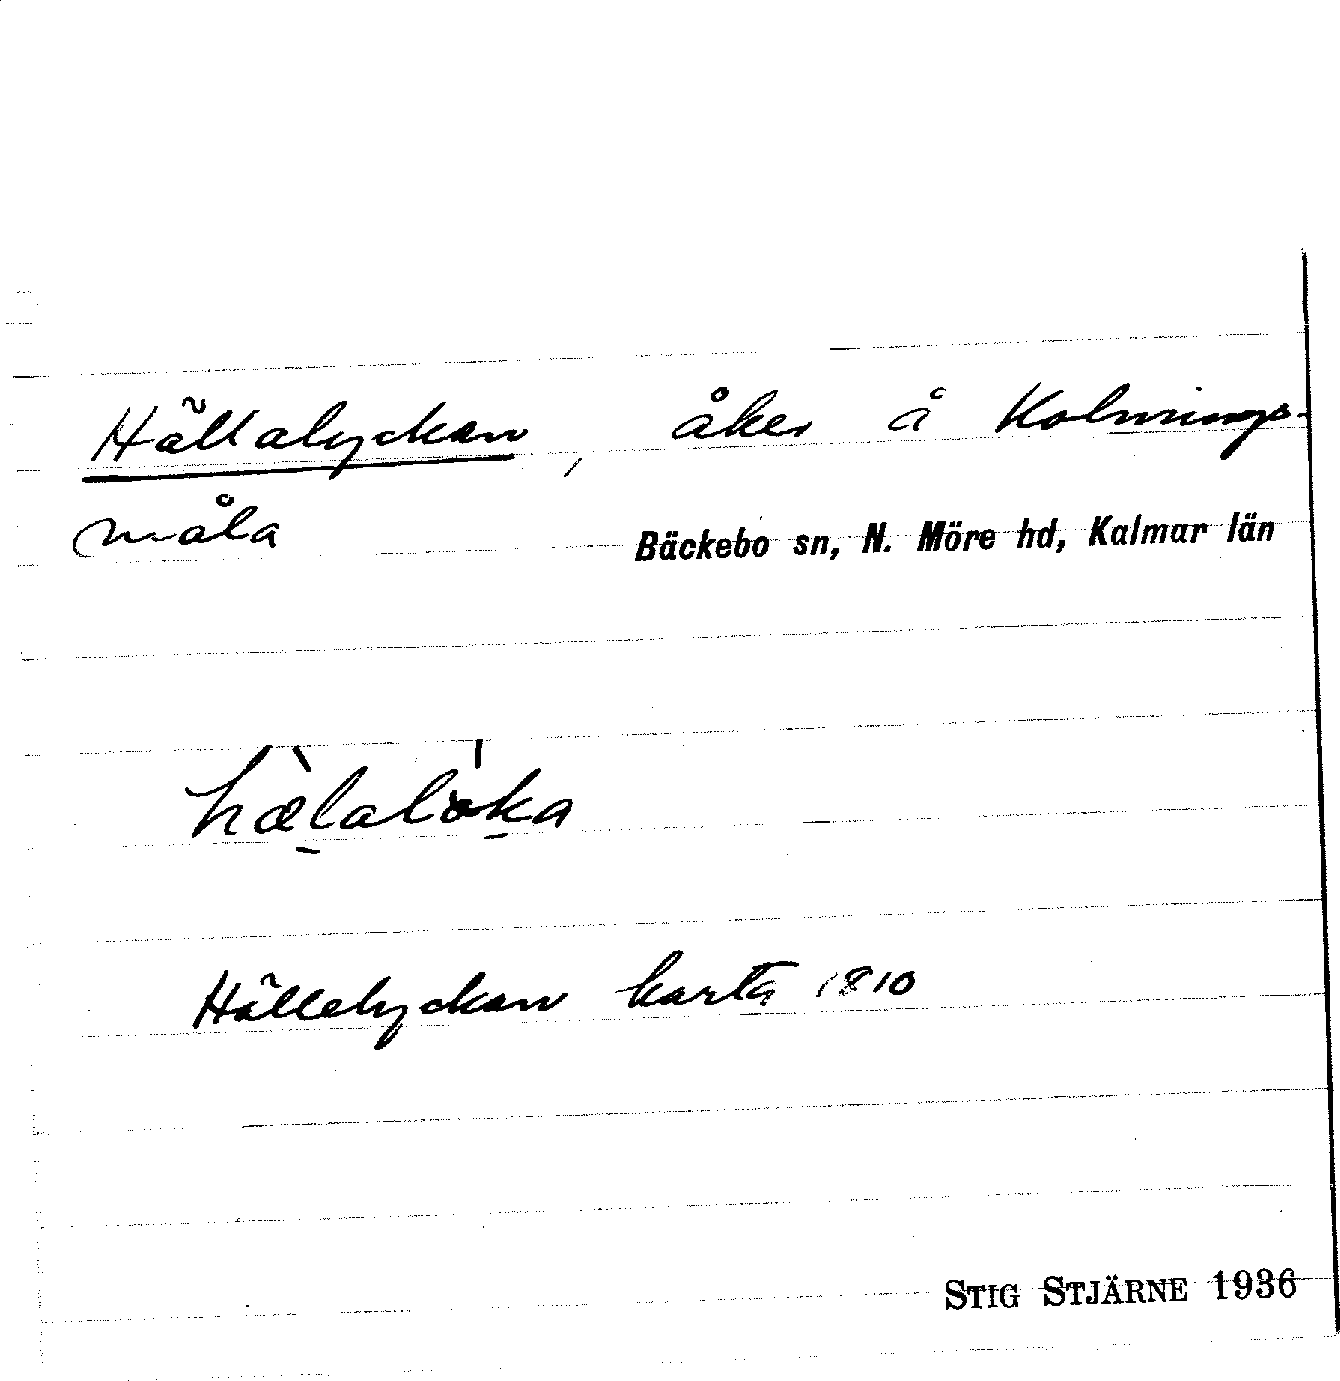 Hällalyckan, åker å Kolnings-
måla
Bäckebo sn, N. Möre hd, Kalmar län
hæ̀lalöka
Hällelyckan karta 1810
STIG STJÄRNE 1936